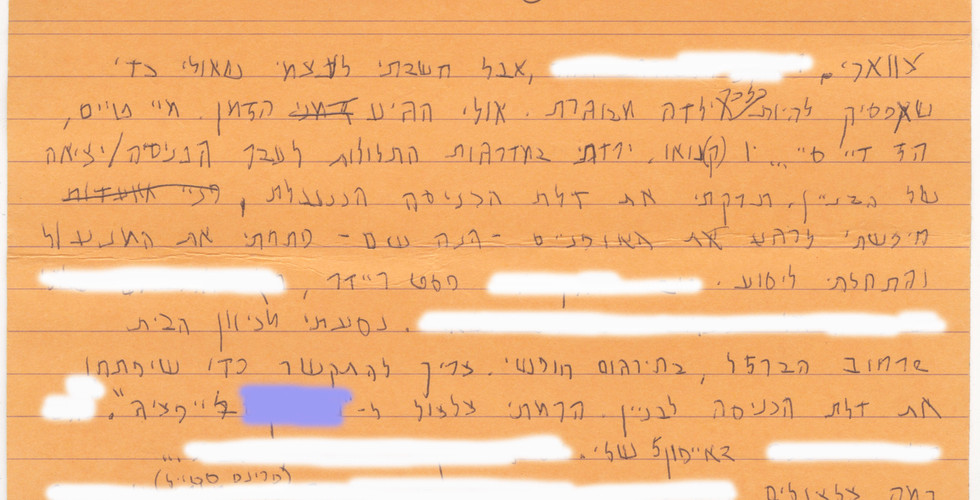 צווארי, אבל חשבתי לעצמי שאולי כדי
שאפסיק להיות כל כך ילדה מבוגרת. אולי הגיע הזמן. מיי טיים,
הז דיי ס"... ירדתי במדרגות התלולות לעבר הכניסה/יציאה
של הבניין. תרקתי את דלת הכניסה הננעלת,
חיפשתי לרגע את האופניים - הנה שם - פתחתי את המנעול
והתחלתי ליסוע. פסט ריידר,
נסעתי מכיוון הבית
שרחוב הברזל, בתירגום חופשי. צריך להתקשר כדי שיפתחו
את דלת הכניסה לבניין. הרמתי צלצול ל- בלייפציג".
באייפון 5 שלי. ...
(פרינס סטייל)
כמה צלצולים